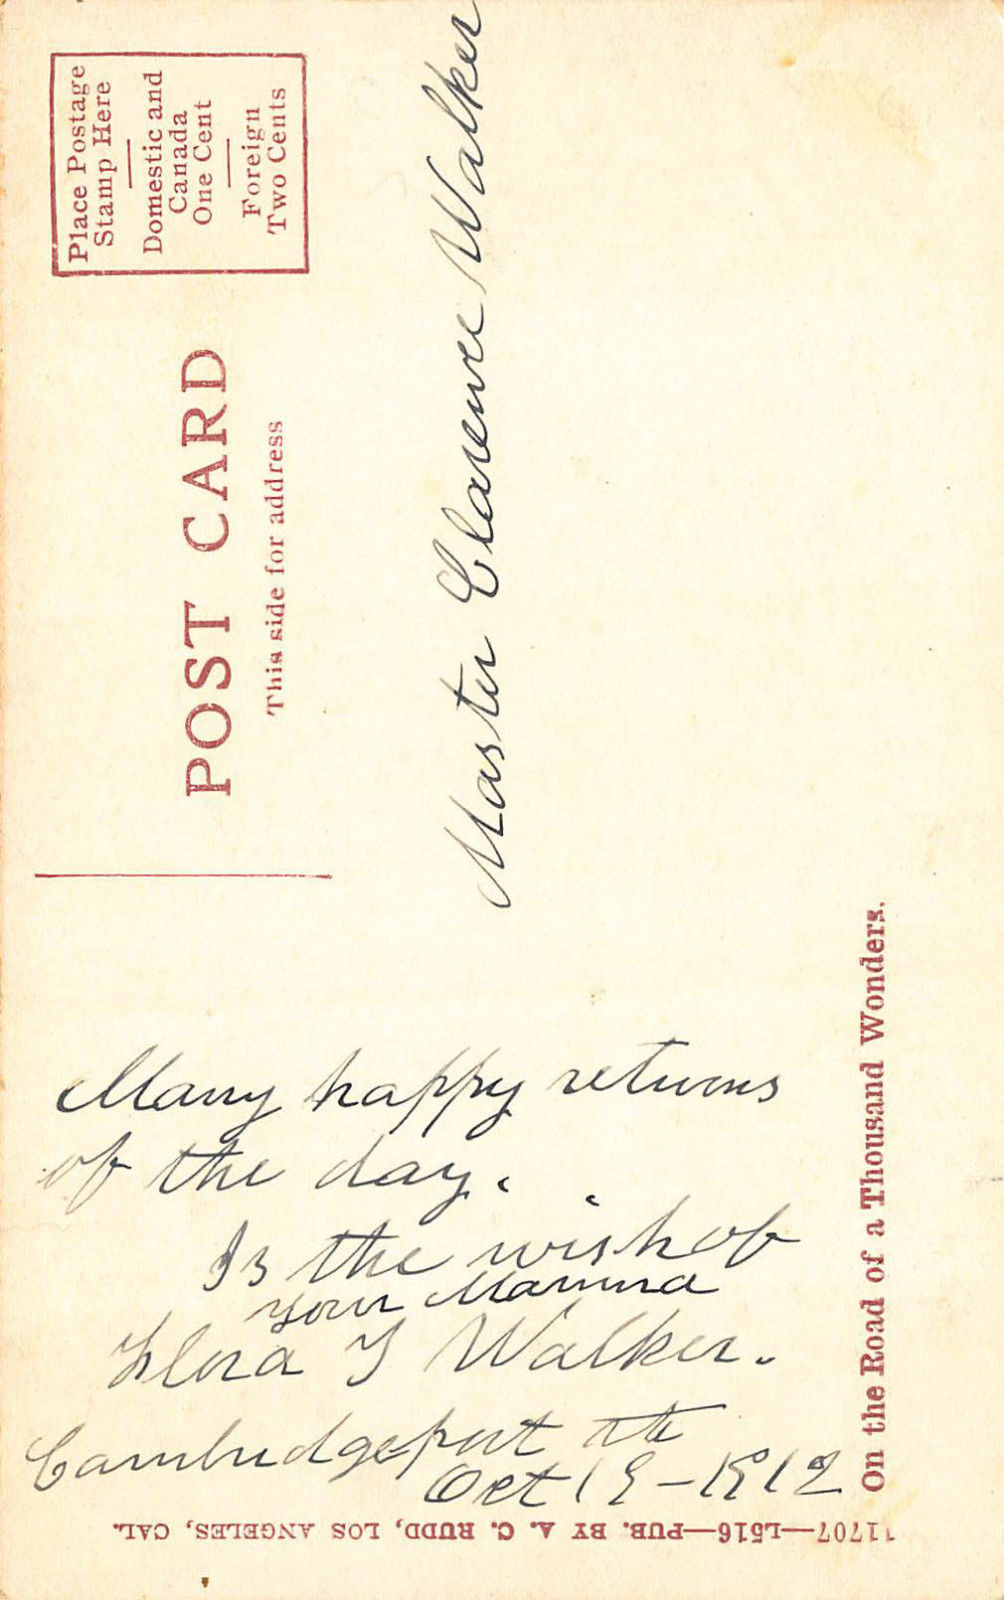 Place Postage
Stamp Here
Domestic and
Canada
One Cent
Foreign
Two Cents
POST CARD
This side for address
Master Clarence Walker
Many happy returns
of the day.
Is the wish of
your Mamma
Flora J Walker.
Cambridgeport
Oct 19 - 1912
On the Road of a Thousand Wonders.
11707—L516—PUB. BY A. C. RUDD, LOS ANGELES, CAL.